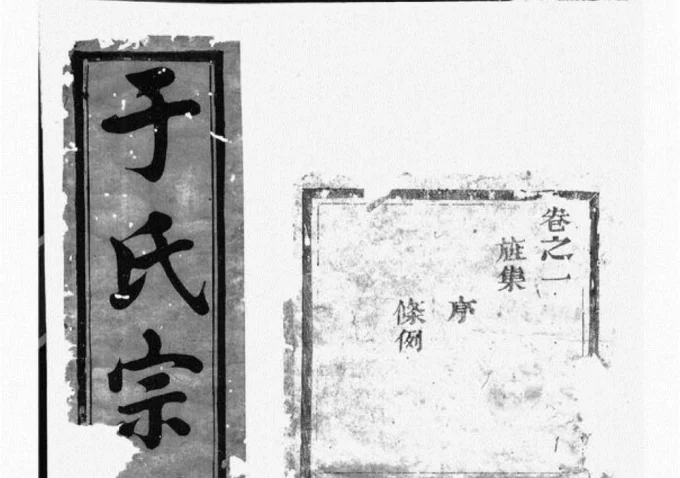 于氏宗
卷之一
集
序
條例